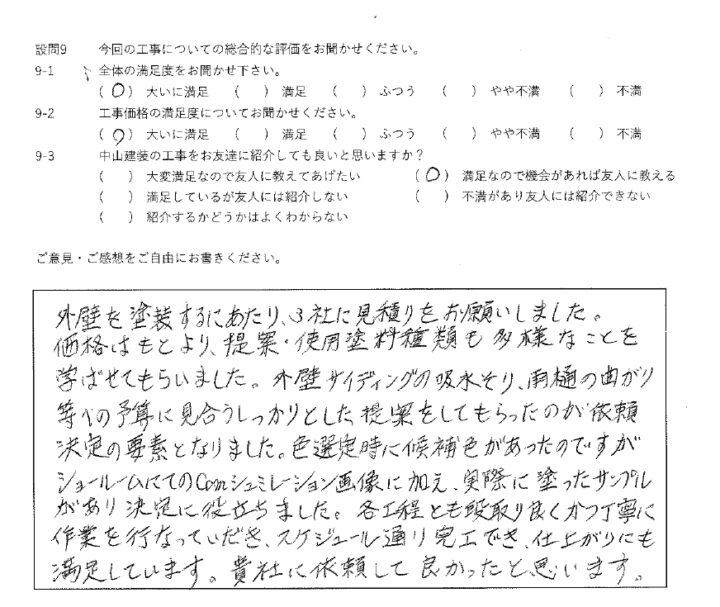 設問9 今回の工事についての総合的な評価をお聞かせください。
9-1 全体の満足度をお聞かせ下さい。
(○) 大いに満足 ( ) 満足 ( ) ふつう ( ) やや不満 ( ) 不満
9-2 工事価格の満足度についてお聞かせください。
(○) 大いに満足 ( ) 満足 ( ) ふつう ( ) やや不満 ( ) 不満
9-3 中山建装の工事をお友達に紹介しても良いと思いますか？
( ) 大変満足なので友人に教えてあげたい (○) 満足なので機会があれば友人に教える
( ) 満足しているが友人には紹介しない ( ) 不満があり友人には紹介できない
( ) 紹介するかどうかはよくわからない
ご意見・ご感想をご自由にお書きください。
外壁を塗装するにあたり、3社に見積りをお願いしました。
価格はもとより、提案・使用塗料種類も多様なことを
学ばせてもらいました。外壁サイディングの吸水そり、雨樋の曲がり
等への予算に見合うしっかりとした提案をしてもらったのが依頼
決定の要素となりました。色選定時に候補色があったのですが
ショールームにてのComシュミレーション画像に加え、実際に塗ったサンプル
があり決定に役立ちました。各工程とも段取り良くかつ丁寧に
作業を行なっていだき、スケジュール通り完工でき、仕上がりにも
満足しています。貴社に依頼して良かったと思います。